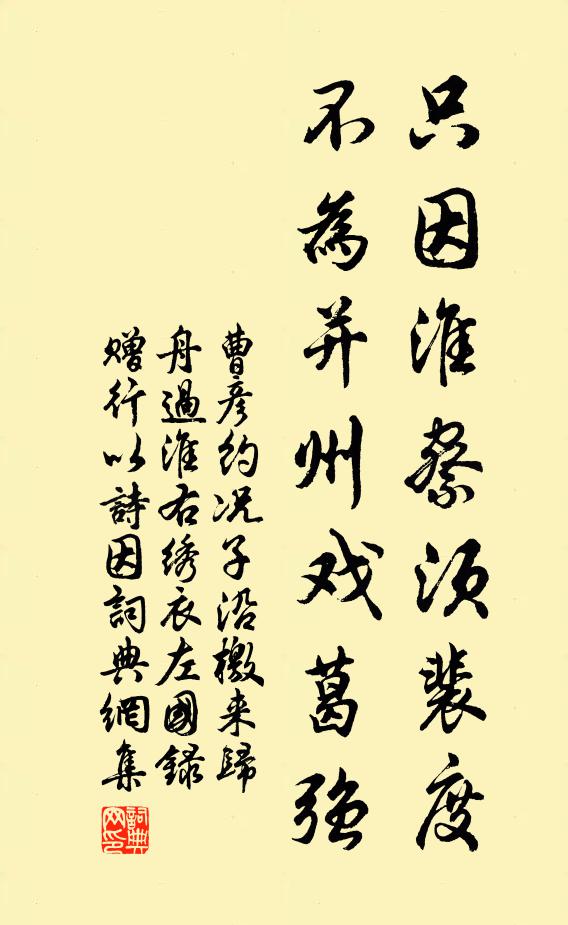 只因淮蔡须裴度
不為并州戏葛强
曹彦约况子沿檄来歸
舟過淮右绣衣左國録
赠行以詩因詞典網集
詞典网印